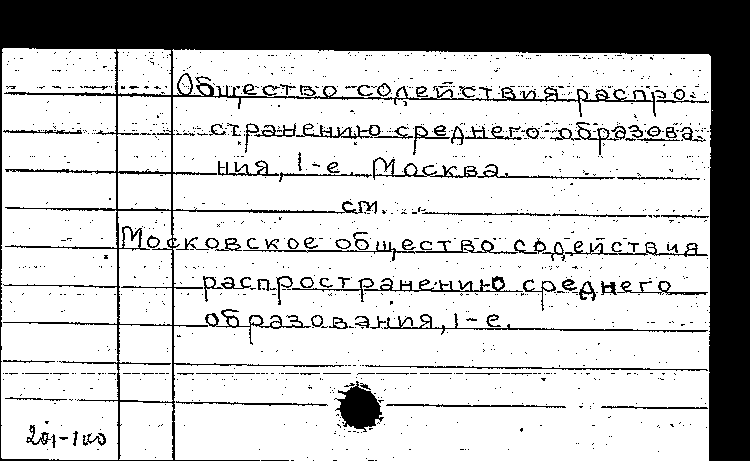 Общество содействия распро-
странению среднего образова-
ния, 1-е. Москва.
см.
Московское общество содействия
распространению среднего
образования, 1-е.